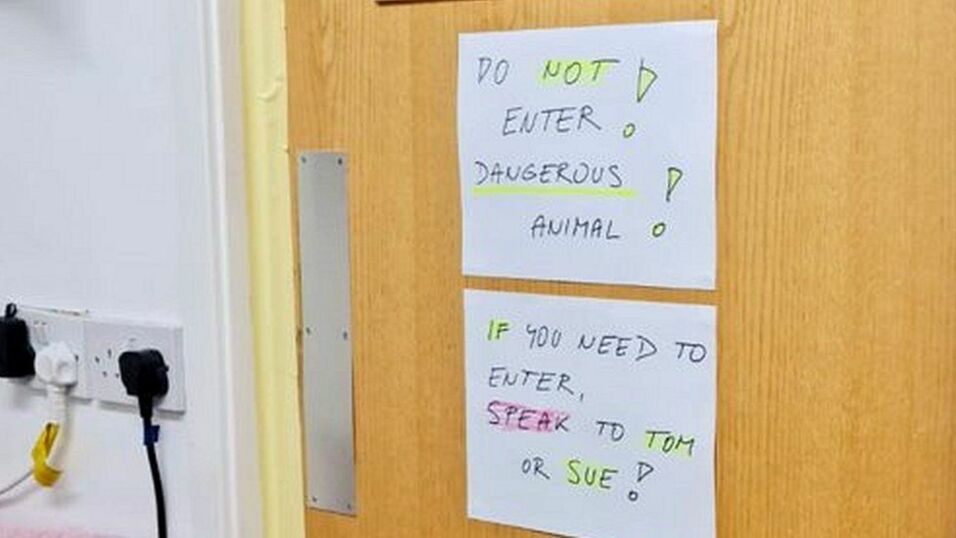 DO NOT !
ENTER
DANGEROUS !
ANIMAL
IF YOU NEED TO
ENTER,
SPEAK TO TOM
OR SUE !